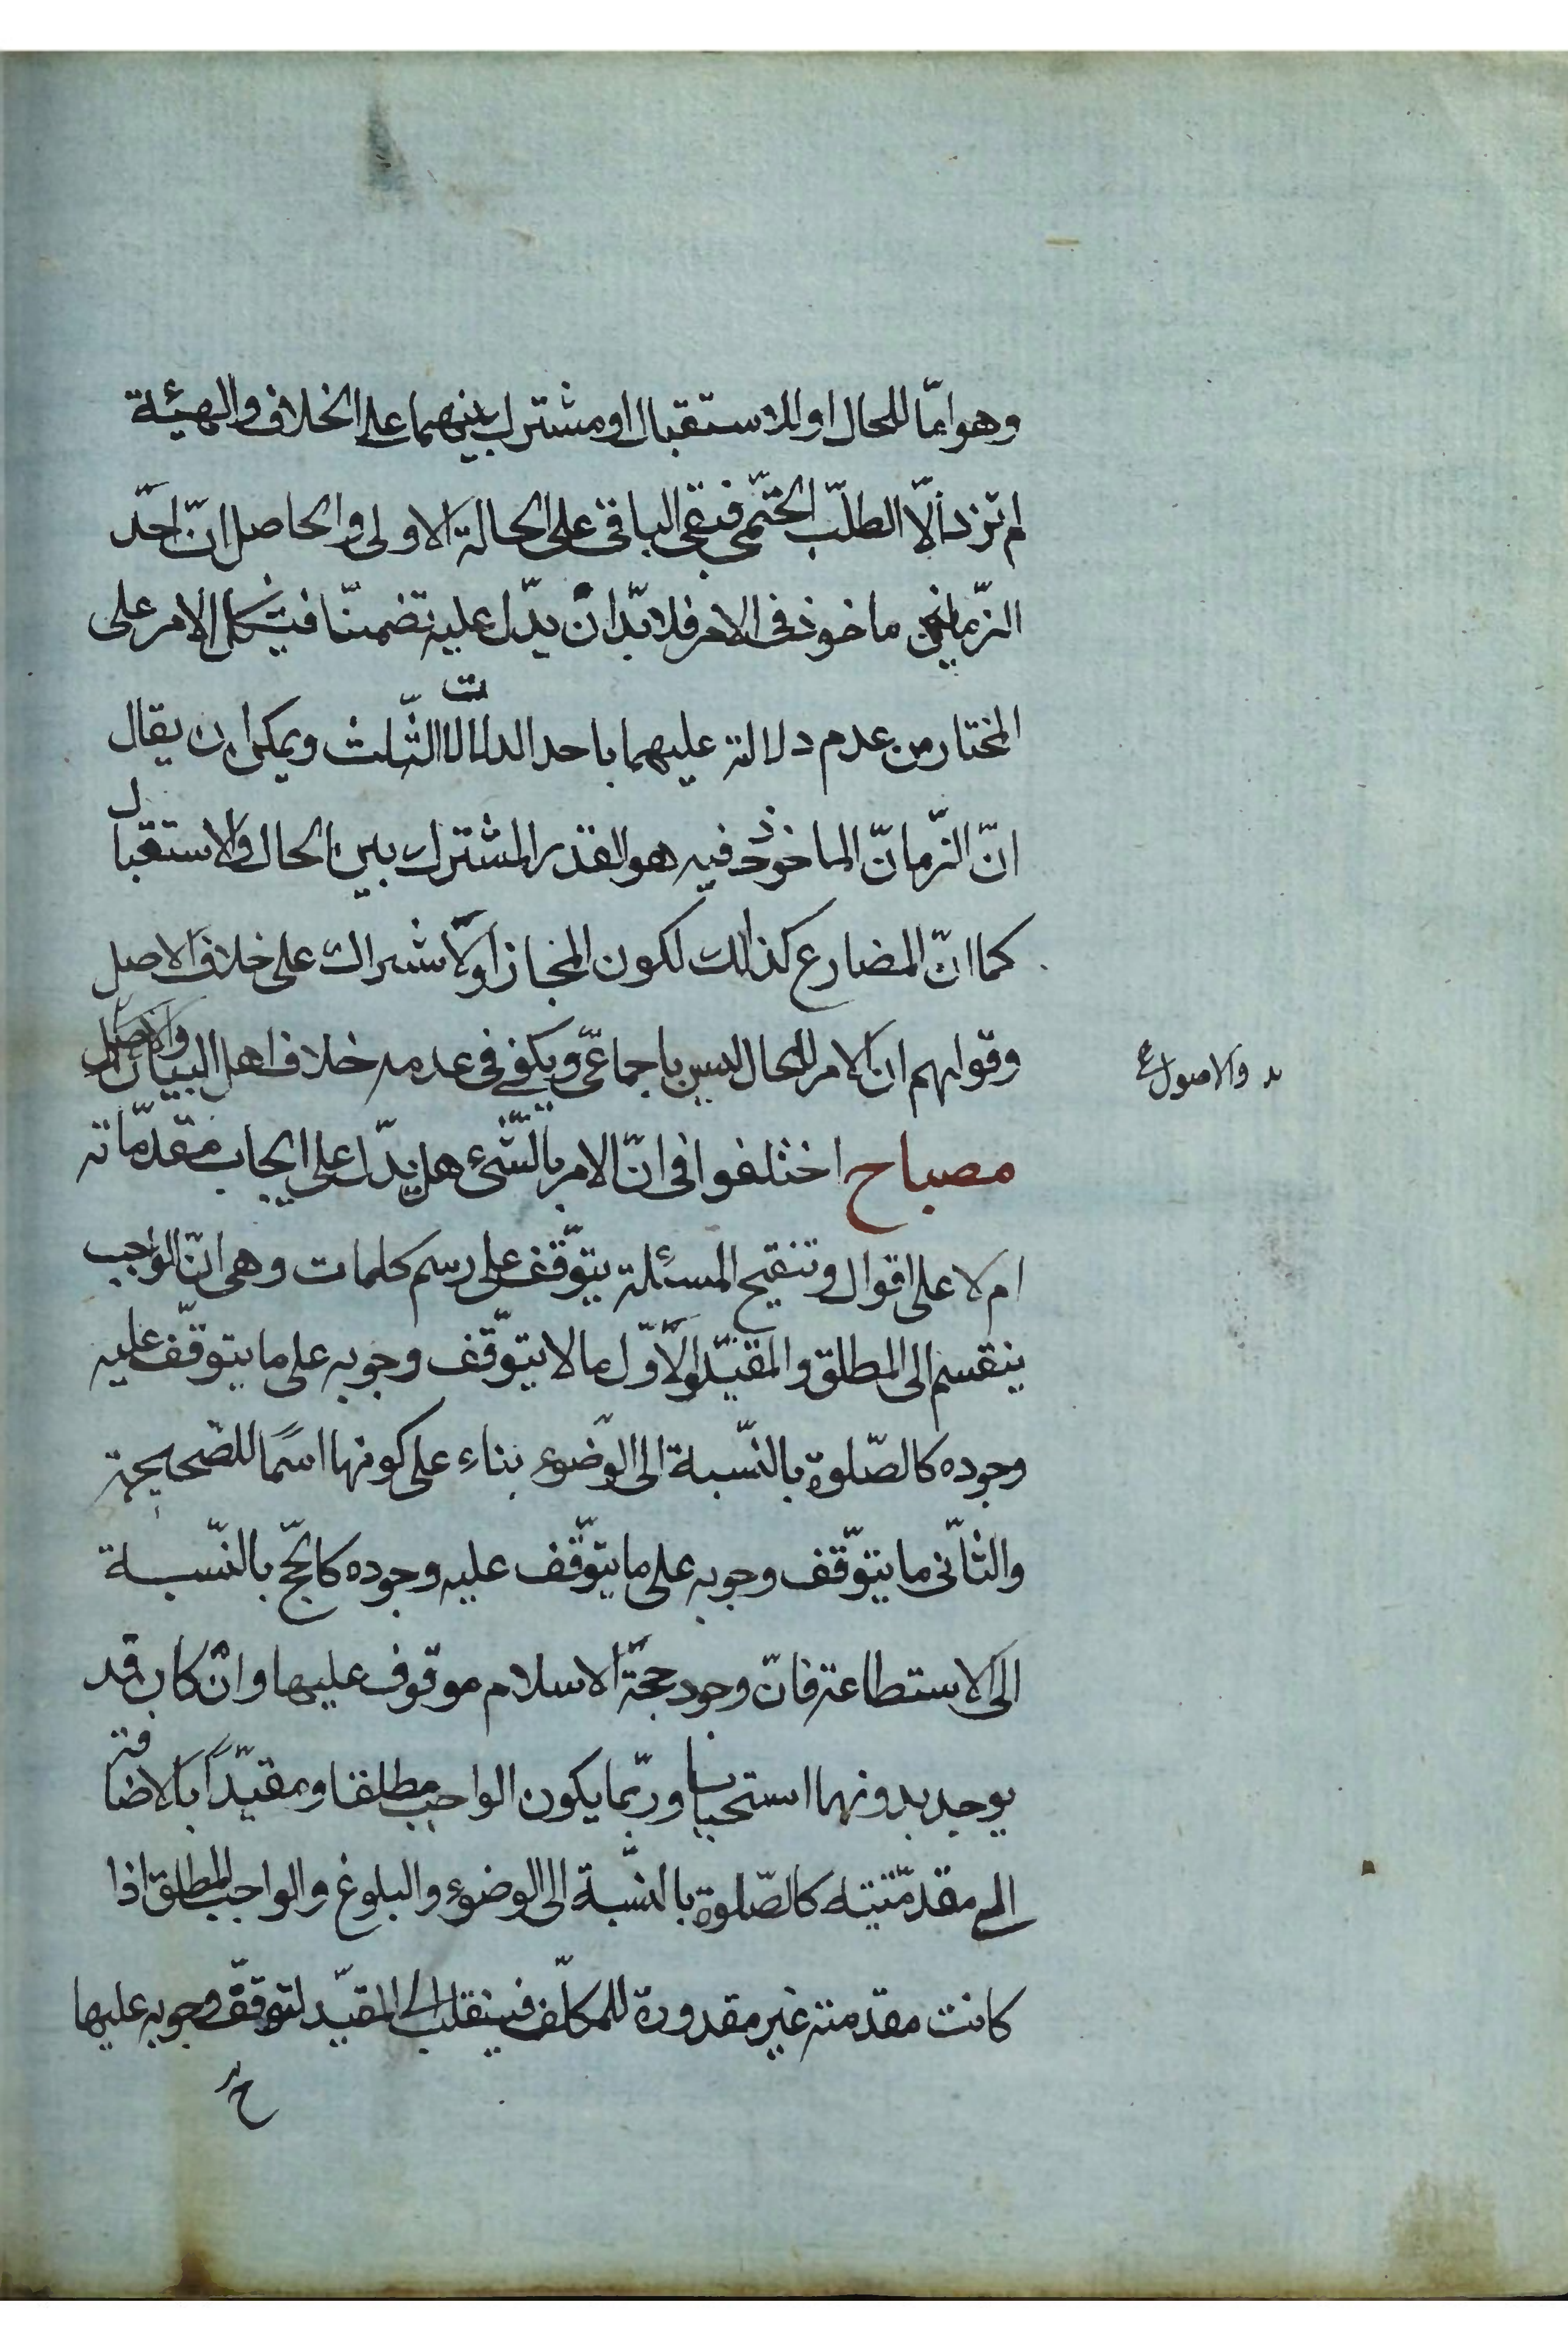 وهو امّا للحال او للاستقبال او مشترك بينهما على الخلاف والهيئة
لم تزد الّا الطلب الحتمّى فبقى الباقى على الحالة الاولى والحاصل انّ احد
الزّمانين ماخوذ فى الامر فلا بدّ انْ يدّل عليه تضمنّا فيشكل الامر على
المختار من عدم دلالته عليهما باحد الدلالات الثّلث ويمكن ان يقال
انّ الزّمانّ الماخوذ فيه هو القدر المشترك بين الحال والاستقبال
كما انّ المضارع كذلك لكون المجاز اوالاشتراك على خلاف الاصل
وقولهم ان الامر للحال ليس باجماعّى ويكفى فى عدمه خلاف اهل البيان
والاصول
مصباح اختلفوا فى انّ الامر بالشّىء هل يدّل على ايجاب مقدّماته
ام لا على اقوال وتنقيح المسئلة يتوّقف على رسم كلمات وهى انّ الواجب
ينقسم الى المطلق والمقيّد والاوّل ما لا يتوّقف وجوبه على ما يتوقّف عليه
وجوده كالصّلوة بالنّسبة الى الوضوء بناء على كونها اسمًا للصّحيحة
والثّانى ما يتوّقف وجوبه على ما يتوّقف عليه وجوده كالحّج بالنّسبة
الى الاستطاعة فانّ وجود حجّة الاسلام موقوف عليها وانْ كان قد
يوجد بدونها استحبابا وربّما يكون الواجب مطلقا ومقيّداً بالاضافة
الى مقدّمتيه كالصّلوة بالنسّبة الى الوضوء والبلوغ والواجب المطلق اذا
كانت مقدمته غير مقدورة للمكلّف فينقلب الى المقيّد لتوقّف وجوبه عليها
ح